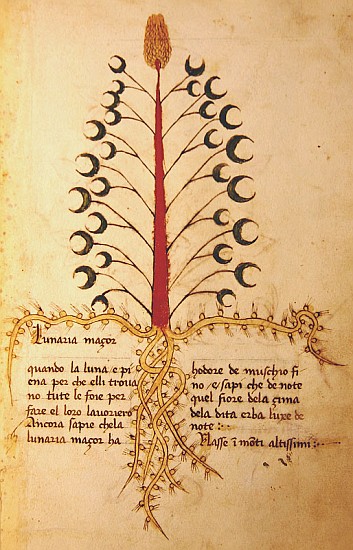 Lunaria maçor
quando la luna e pi
ena per che elli troua
no tute le foie per
fare el lozo lauoriero
Ancora sapie chela
lunaria maçor ha
hodore de muschio fi
no / e sapi che de note
quel fiore dela çima
dela dita erba luxe de
note :
Nasse ĩ mõti altissimi :